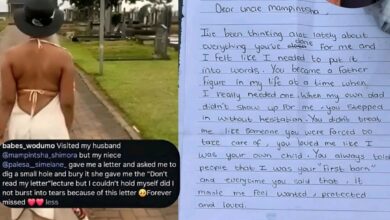 babes_wodumo Visited my husband
@mampintsha_shimora but my niece
@palesa_simelane_ gave me a letter and asked me to
dig a small hole and bury it she gave me the “Don’t
read my letter”lecture but I couldn’t hold myself did I
not burst into tears because of this letter 🥹Forever
missed ❤️❤️ less
Dear uncle mampintsha,
I've been thinking alot lately about
everything you've done for me and I
felt like I needed to put it
into words. You became a father
figure in my life at a time when
I really needed one. When my own dad
didn't show up for me, you stepped
in without hesitation. You didn't treat
me like someone you were forced to
take care of, you loved me like I
was your own child. You always told
people that I was your "first born"
and everytime you said that, it
made me feel wanted, protected
and loved.